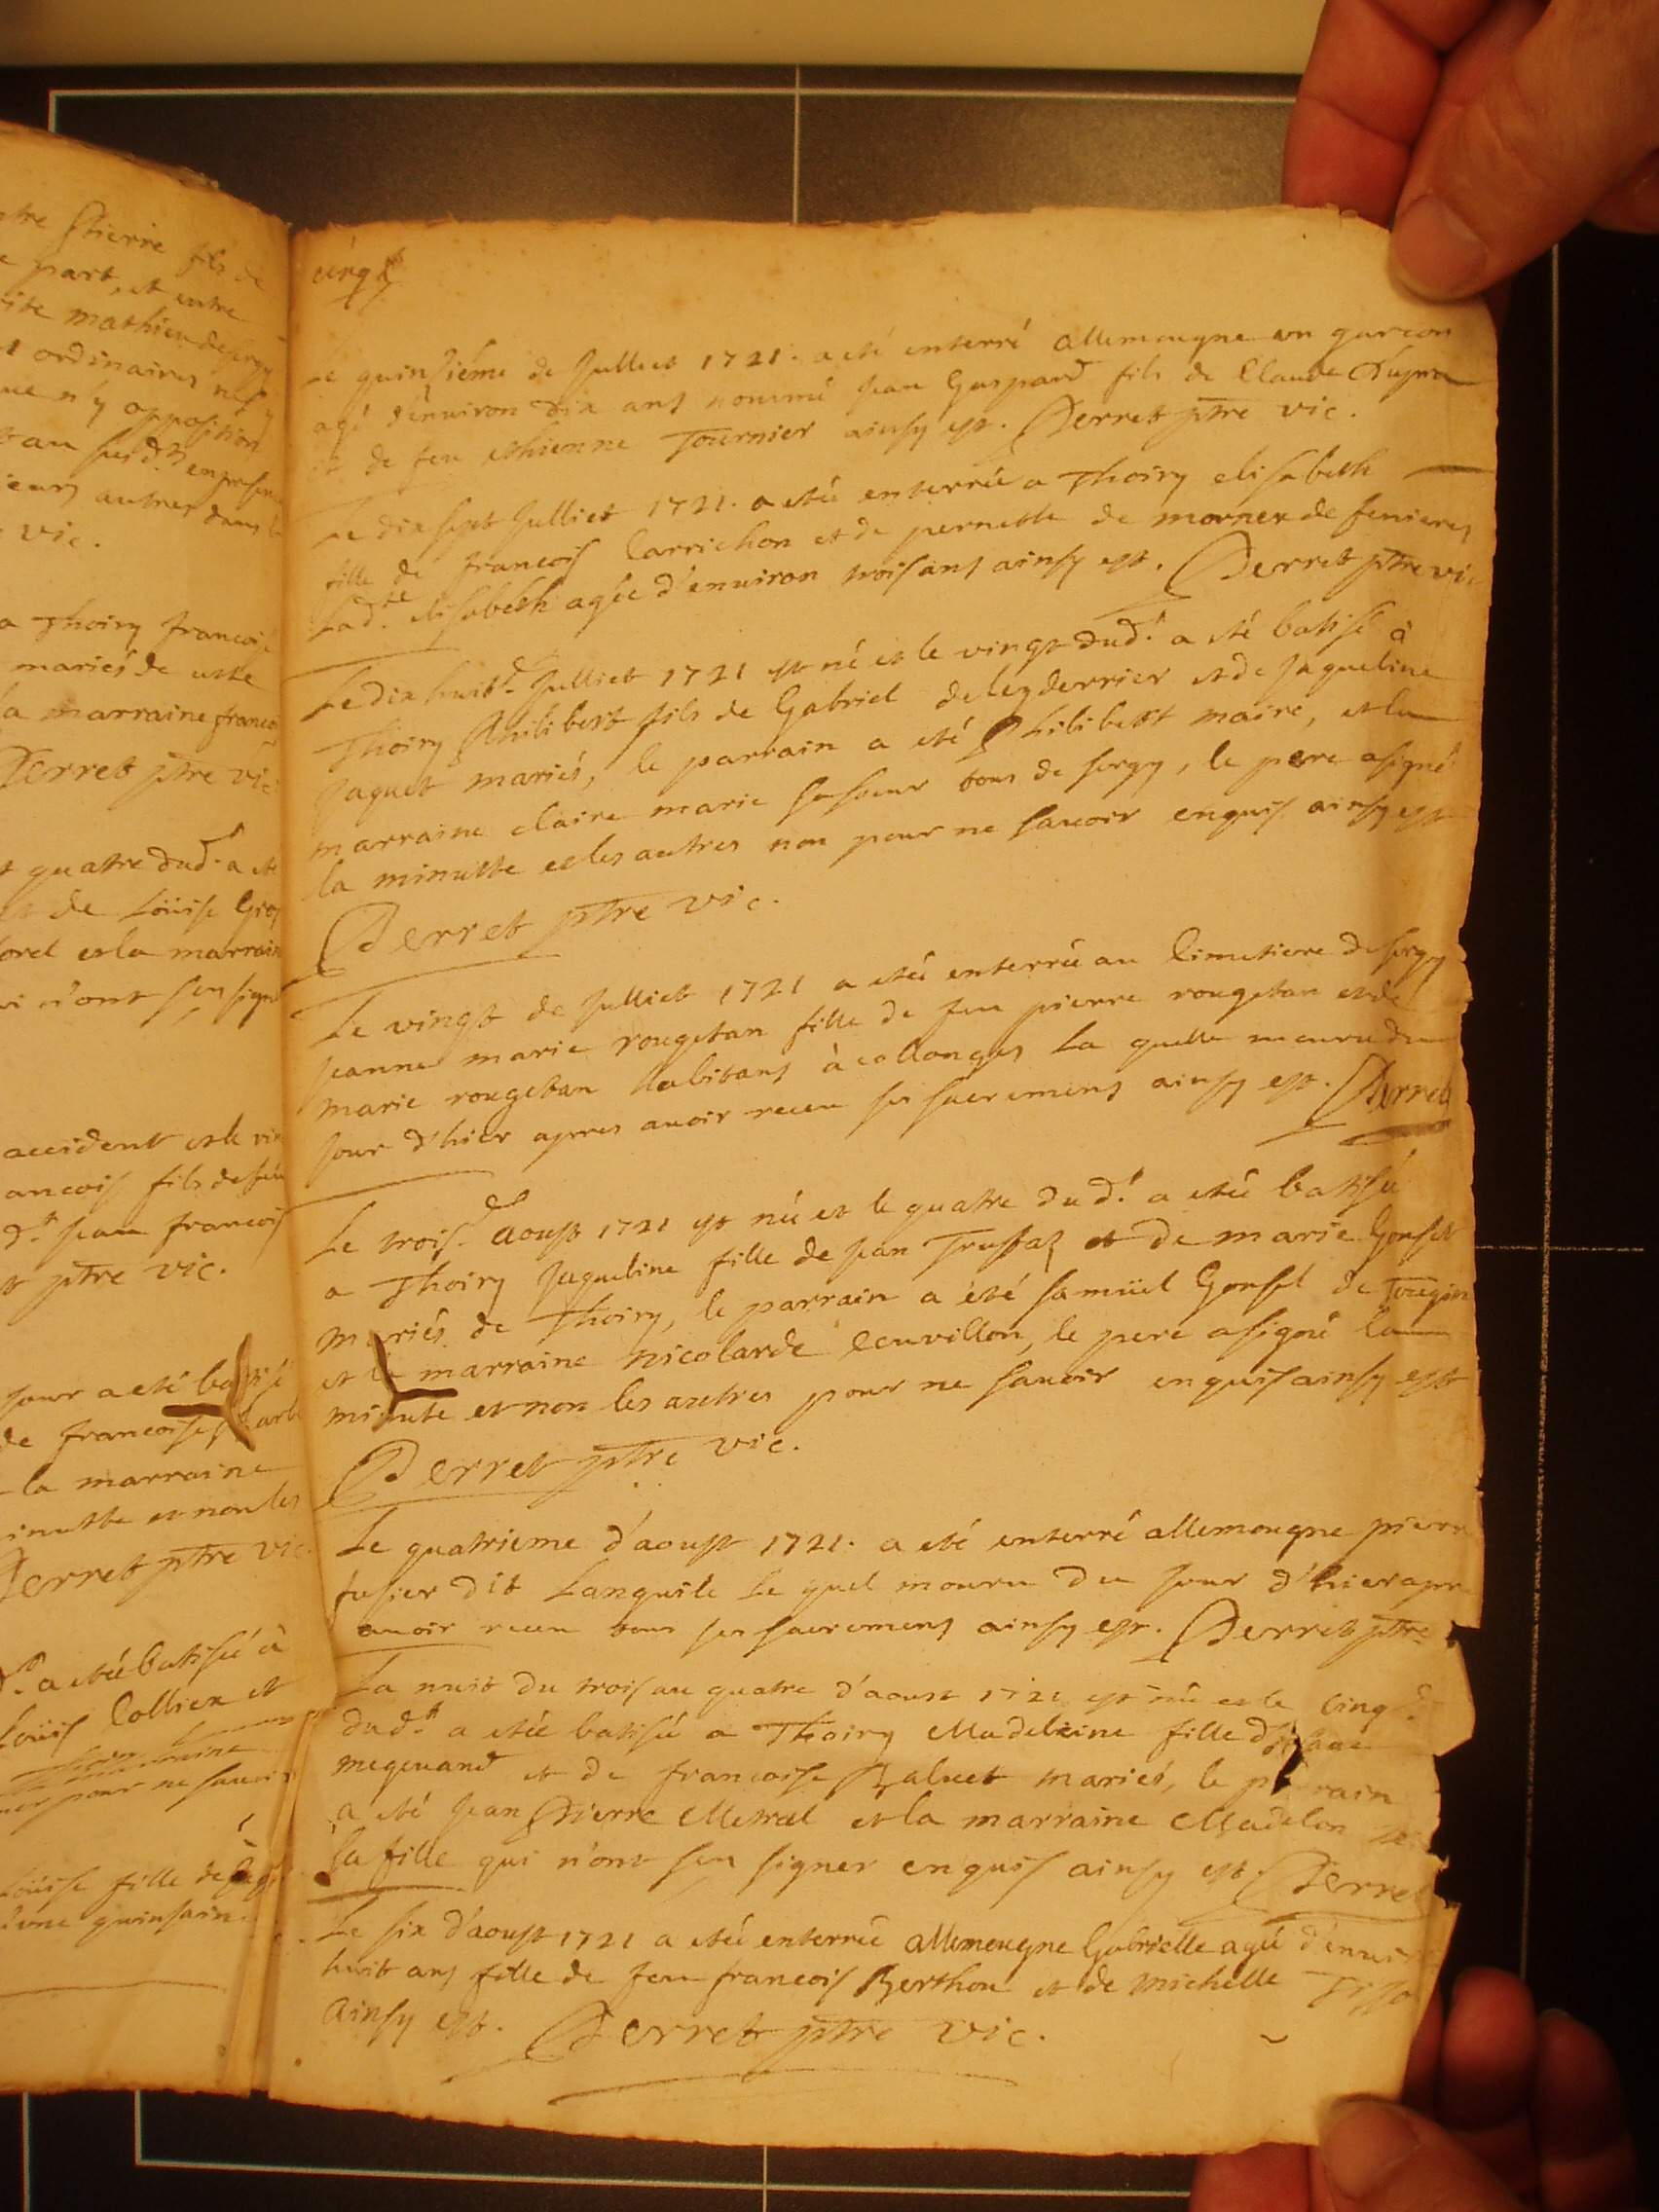 ntre Pierre fils de
e part, et entre
mathieu de sergy
ordinaires
ue n'y opposition
au susd.
ieurs autres dans
vic.
a Thoiry francoi
mariés de
la marraine franco
Perret ptre vic
quatre dud. a
et de Loüise
et la marrain
n'ont sceu sign
accident et le
ancois fils de feu
d.t jean francois
ptre vic.
jour a eté ba
de francoise
la marraine
inutte et non les
Perret ptre vic.
a etéé batisée à
Loüis Collier et
pour ne savoir
Loüise fille de
d'une quinsain
cinq
Le quinsiéme de Julliet 1721. a eté enterré allemougne un garcon
agé d'environ dix ans nommé jean Gaspard fils de Claude
et de feu ethienne Tournier ainsy est. Perret ptre vic.
Le dix sept Julliet 1721. a etéé enterrée a Thoiry elisabeth
fille de francois Carrichon et de pernette de mornex de fenieres
Lad.te elisabeth agée d'environ trois ans ainsy est. Perret ptre vic
Le dix huit.e Julliet 1721 est né et le vingt dud.t a eté batisé à
Thoiry Philibert fils de Gabriel delesderrier et de Jaqueline
Jaquet mariés, le parrain a eté Philibert maire, et la
marraine claire marie sa soeur tous de sergy, le pere a signé
la minutte et les autres non pour ne savoir enquis ainsy est
Perret ptre vic.
Le vingt de Julliet 1721 a etéé enterrée au Cimetiere de sergy
jeanne marie rougetan fille de feu pierre rougetan et de
marie rougetan habitans à collonges La quelle mouru du
jour d'hier apres avoir receu ses sacremens ainsy est. Perret
Le trois.e d'aoust 1721 est néé et le quatre dud.t a etéé batisée
a Thoiry Jaqueline fille de jean Truffaz et de marie Gonset
mariés de Thoiry, le parrain a été samüel Gonsel de Tougin
et la marraine nicolarde Ecuvillon, le pere a signé la
minute et non les autres pour ne savoir enquis ainsy est
Perret ptre vic.
Le quatrieme d'aoust 1721. a eté enterré allemougne pierre
fusier dit Languile le quel mouru du jour d'hier apr
avoir receu tous ses sacremens ainsy est. Perret ptre
La nuit du trois au quatre d'aoust 1721 est néé et le cinq
dud.t a etéé batisée a Thoiry Madeleine fille d'
megevand et de francoise Baluet mariés, le parrain
a eté Jean Pierre Metral et la marraine Madelon
sa fille qui n'ont sceu signer enquis ainsy est Perret
Le six d'aoust 1721 a etéé enterrée allemougne Gabrielle agée d'envir
huit ans fille de feu francois Berthou et de michelle Tisso
ainsy est. Perret ptre vic.